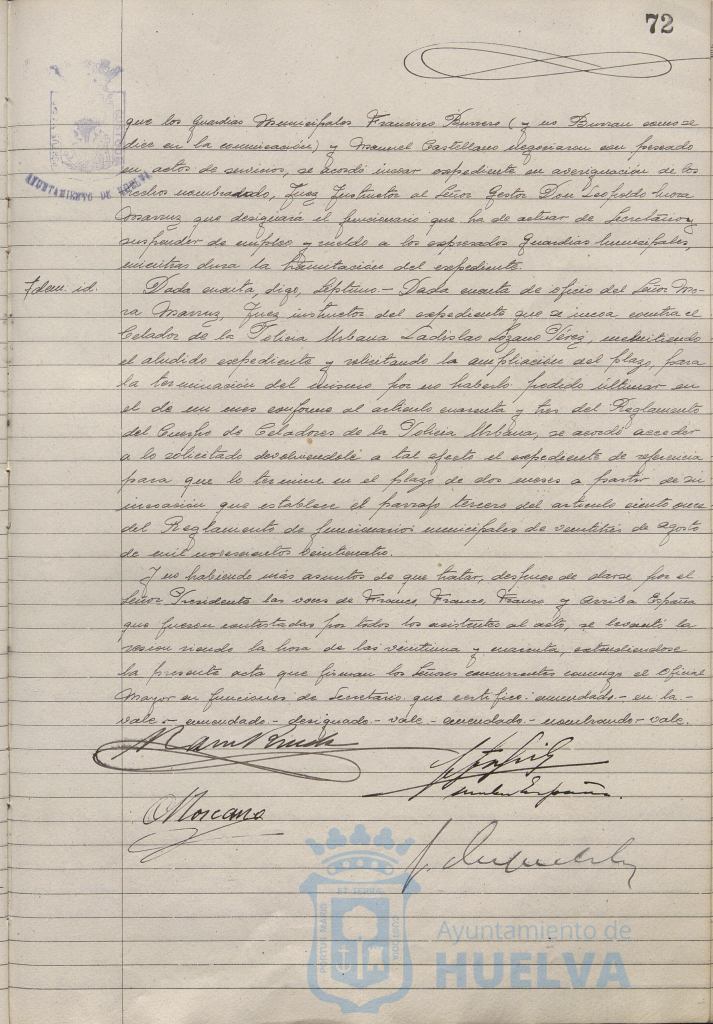 72
AYUNTAMIENTO DE HUELVA
que los Guardias Municipales Francisco Borrero (y no Burran como se
dice en la comunicación) y Manuel Castellano negociaron con pescado
en actos de servicios, se acordó incoar expediente en averiguación de los
hechos nombrando, Juez Instructor al Señor Gestor Don Leopoldo Mora
Marruz que designará el funcionario que ha de actuar de Secretario y
suspender de empleo y sueldo a los expresados Guardias Municipales,
mientras dura la tramitación del expediente.
Idem. id. Dada cuenta, digo, Séptimo.- Dada cuenta de oficio del Señor Mo-
ra Marruz, Juez instructor del expediente que se incoa contra el
Celador de la Policia Urbana Ladislao Lozano Pérez, remitiendo
el aludido expediente y solicitando la ampliación del plazo, para
la terminación del mismo por no haberlo podido ultimar en
el de un mes conforme al artículo cuarenta y tres del Reglamento
del Cuerpo de Celadores de la Policia Urbana, se acordó acceder
a lo solicitado devolviendole a tal efecto el expediente de referencia
para que lo termine en el plazo de dos meses a partir de su
incoación que establece el parrafo tercero del artículo ciento once
del Reglamento de funcionarios municipales de veintitrés de agosto
de mil novecientos veinticuatro.
Y no habiendo más asuntos de que tratar, despues de darse por el
Señor Presidente las voces de Franco, Franco, Franco y Arriba España
que fueron contestadas por todos los asistentes al acto, se levantó la
sesion siendo la hora de las veintiuna y cuarenta, extendiendose
la presente acta que firman los Señores concurrentes conmigo el Oficial
Mayor en funciones de Secretario que certifico: enmendado - en la -
vale - enmendado - designado - vale - enmendado - nombrando - vale.
PORTUS MARIS ET TERRAE CUSTODIA
Ayuntamiento de
HUELVA